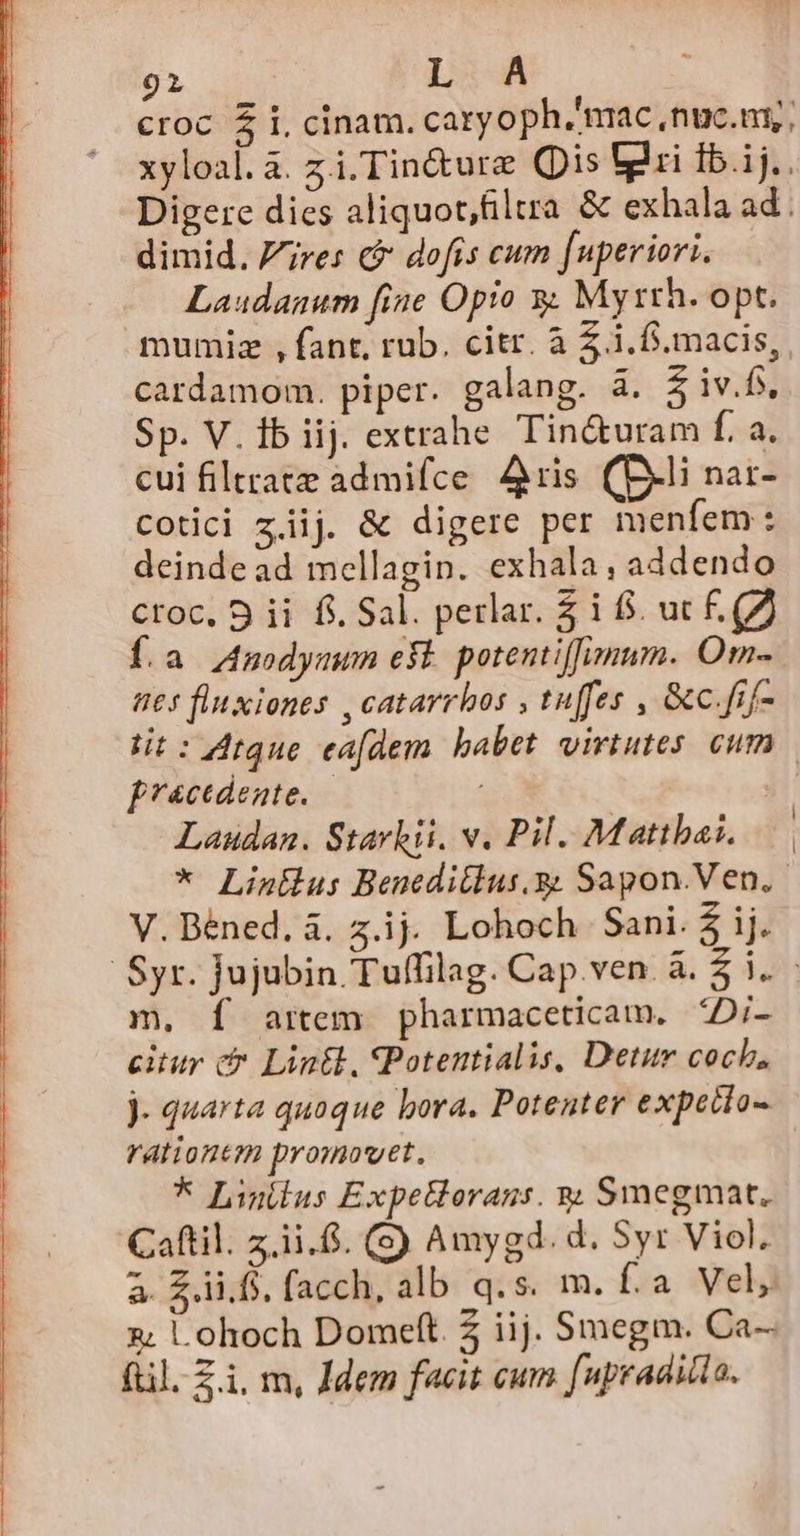 92 L A
croc ℥ i. cinam. caryoph. mac. nuc. m.
xyloal. ā. ʒ i. Tincturæ ☉is 🜿ri ℔. ij.
Digere dies aliquot, filtra & exhala ad
dimid. Vires & dosis cum superiori.
Laudanum sine Opio ℞ Myrrh. opt.
mumiæ, sant. rub. citr. ā ℥. i. ß. macis,
cardamom. piper. galang. ā. ℥ iv. ß.
Sp. V. ℔ iij. extrahe Tincturam ſ. a.
cui filtratæ admiſce 🜍ris ☉li nar-
cotici ʒ. iij. & digere per menſem :
deinde ad mellagin. exhala, addendo
croc. ℈ ii ß. Sal. perlar. ℥ i ß. ut f.
ſ. a Anodynum eſt potentiſſimum. Om-
nes fluxiones, catarrhos, tuſſes, &c. ſiſ-
tit : Atque eaſdem habet virtutes cum
præcedente.
Laudan. Starkii. v. Pil. Matthæi.
* Linctus Benedictus. ℞ Sapon. Ven.
V. Bened. ā. ʒ. ij. Lohoch Sani. ℥ ij.
Syr. Jujubin. Tuſſilag. Cap. ven. ā. ℥ i.
m. ſ artem pharmaceticam. Di-
citur & Linct. Potentialis. Detur coch.
j. quarta quoque hora. Potenter expecto-
rationem promovet.
* Linctus Expectorans. ℞ Smegmat.
Caſtil. ʒ. ii. ß. Amygd. d. Syr Viol.
ā. ℥. ii. ß. ſacch. alb q. s. m. ſ. a Vel,
℞ Lohoch Domeſt. ℥ iij. Smegm. Ca-
ſtil. ℥. i. m. Idem facit cum ſupradicto.